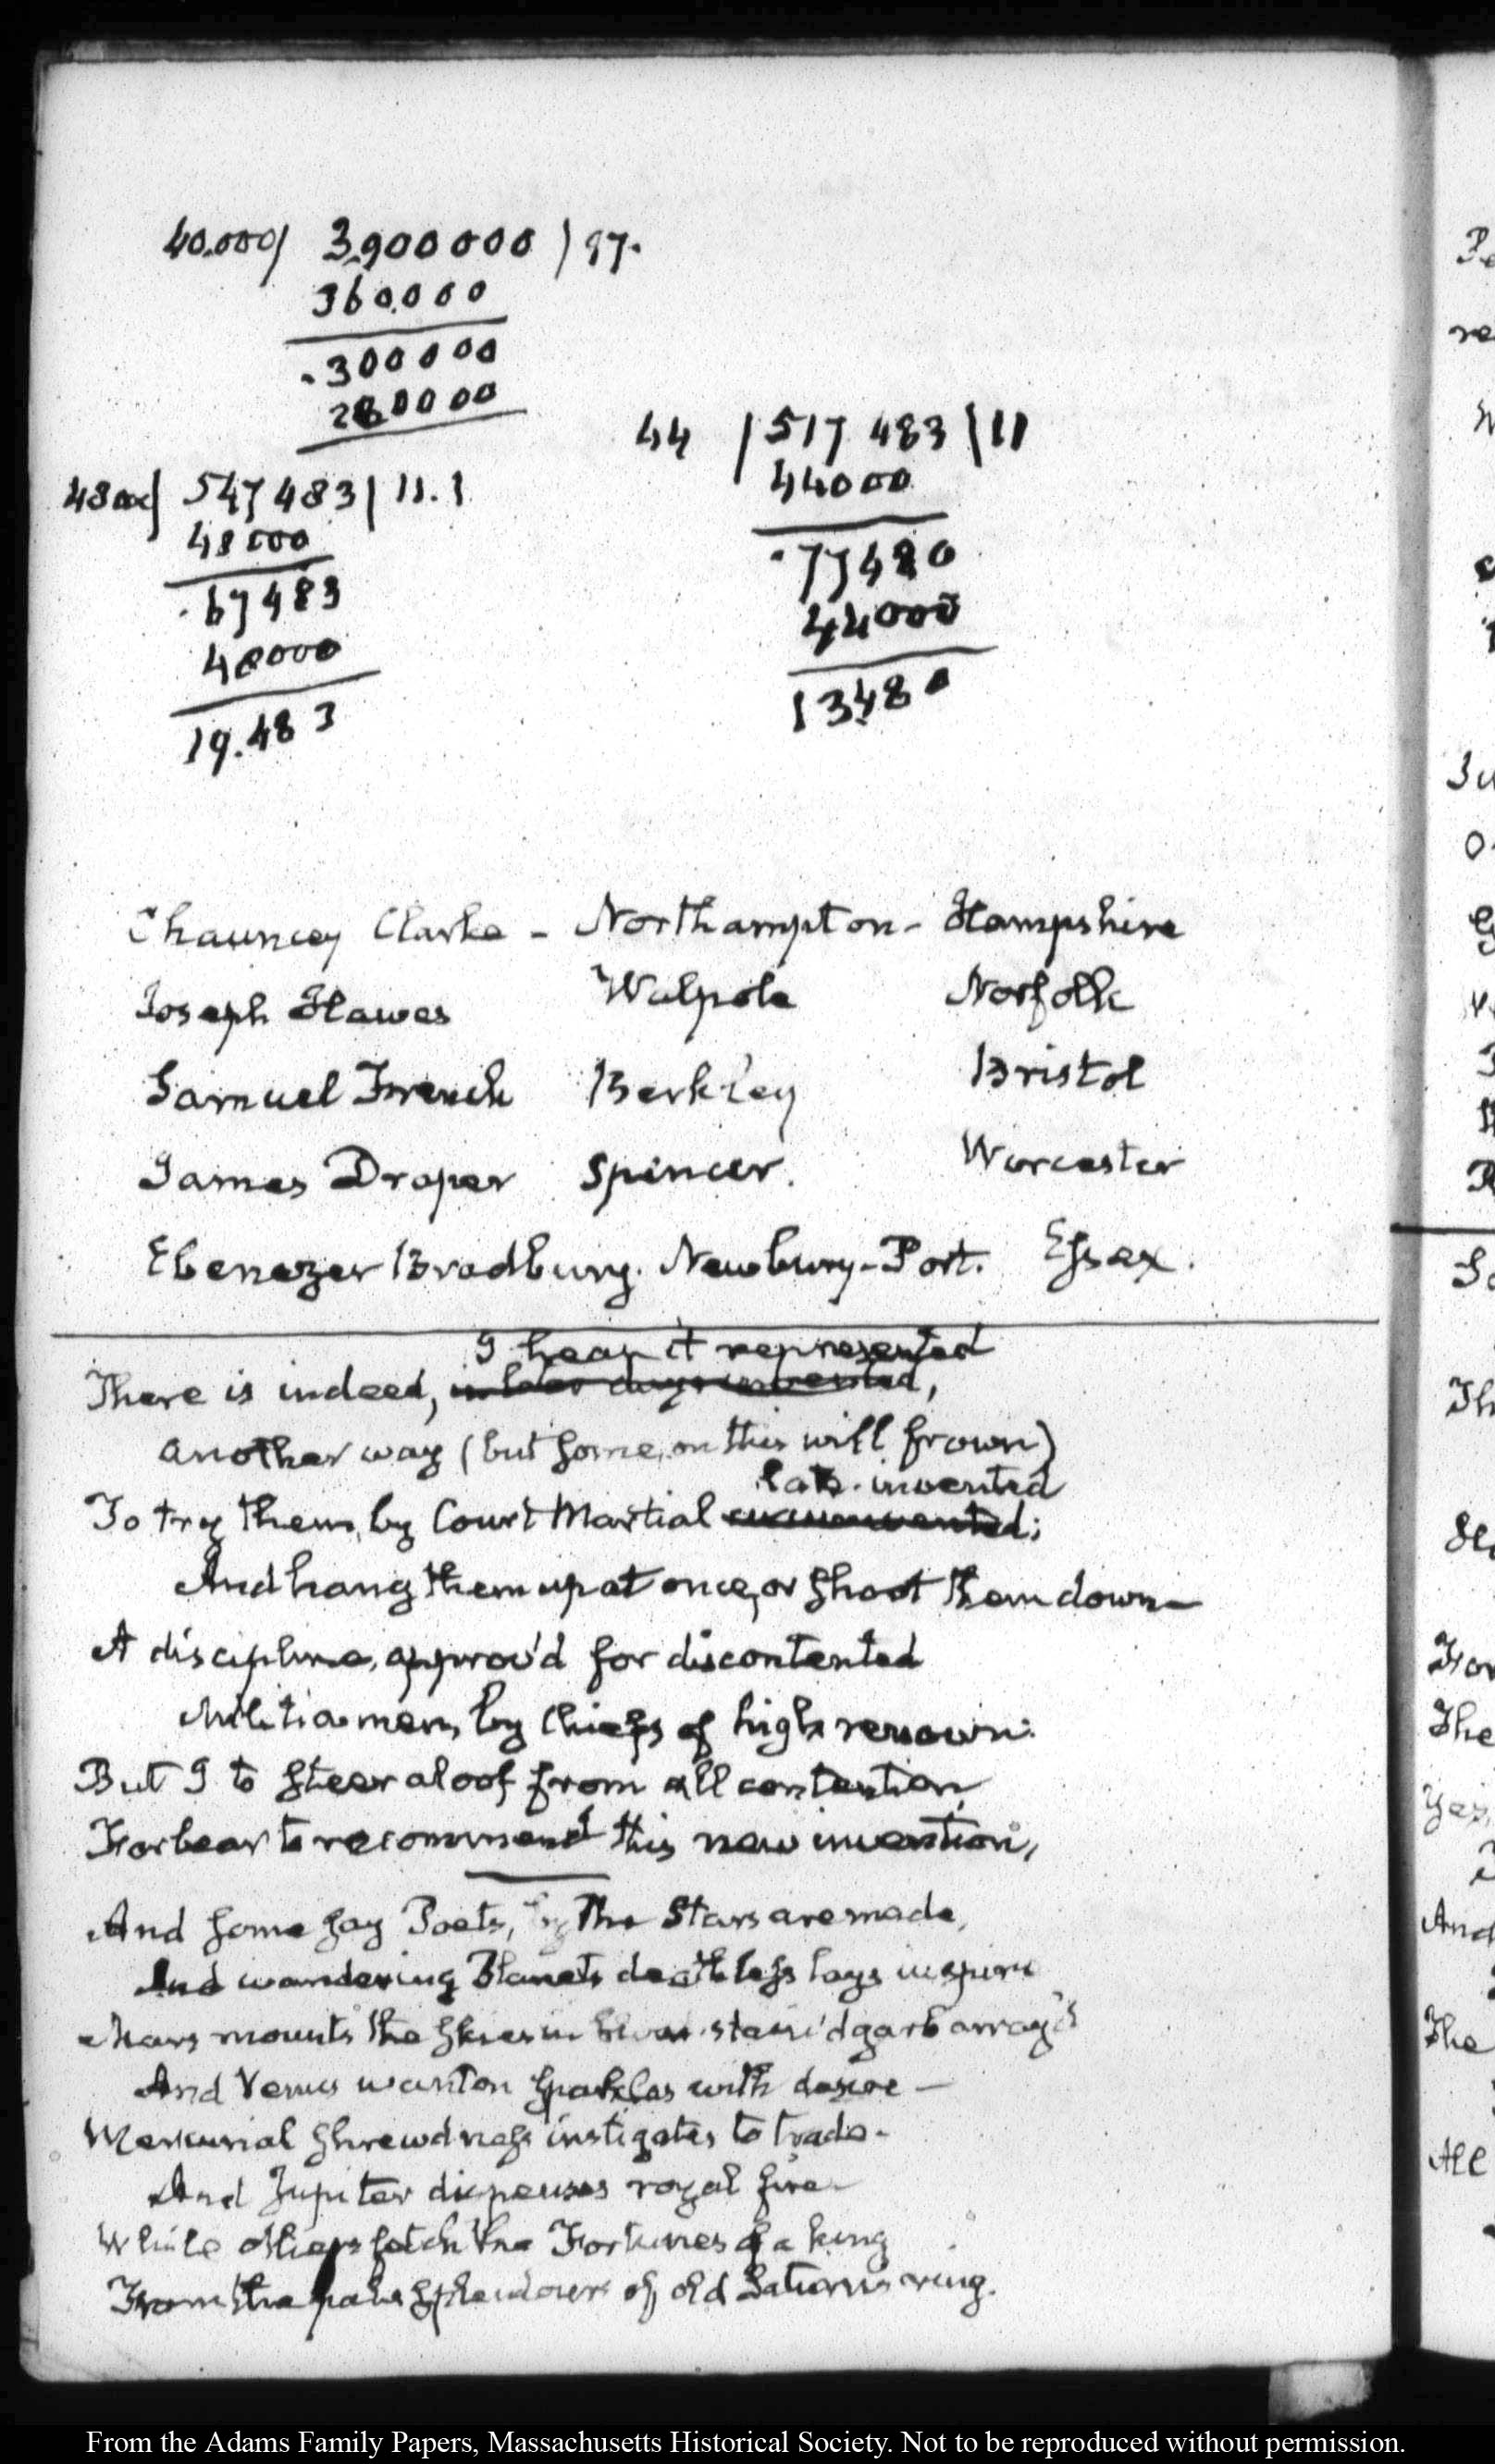 40.000/ 3.900000 ) 97.
360.000
.300000
280000
48000/ 547483 / 11.1
48000
.67483
48000
19.483
44 / 517 483 \ 11
44000
.77480
44000
13480
Chauncey Clarke - Northampton - Hampshire
Joseph Hawes Walpole Norfolk
Samuel French Berkley Bristol
James Draper Spencer. Worcester
Ebenezer Bradbury. Newbury-Port. Essex.
I hear it represented
There is indeed, in later days invented,
another way (but some, on this will frown)
late invented
To try them, by Court Martial
And hang them up at once, or shoot them down—
A discipline, approv'd for discontented
Militia men, by Chiefs of high renown:
But I to steer aloof from all contention,
Forbear to recommend this new invention,
And some say Poets, by The Stars are made,
And wandering Planets deathless lays inspire
Mars mounts the skies in stain'd garb array'd
And Venus wanton sparkles with desire—
Mercurial shrewdness instigates to trade-
And Jupiter dispenses royal fire-
While others fetch the Fortunes of a king
From the pale splendours of old Saturn's ring.
From the Adams Family Papers, Massachusetts Historical Society. Not to be reproduced without permission.